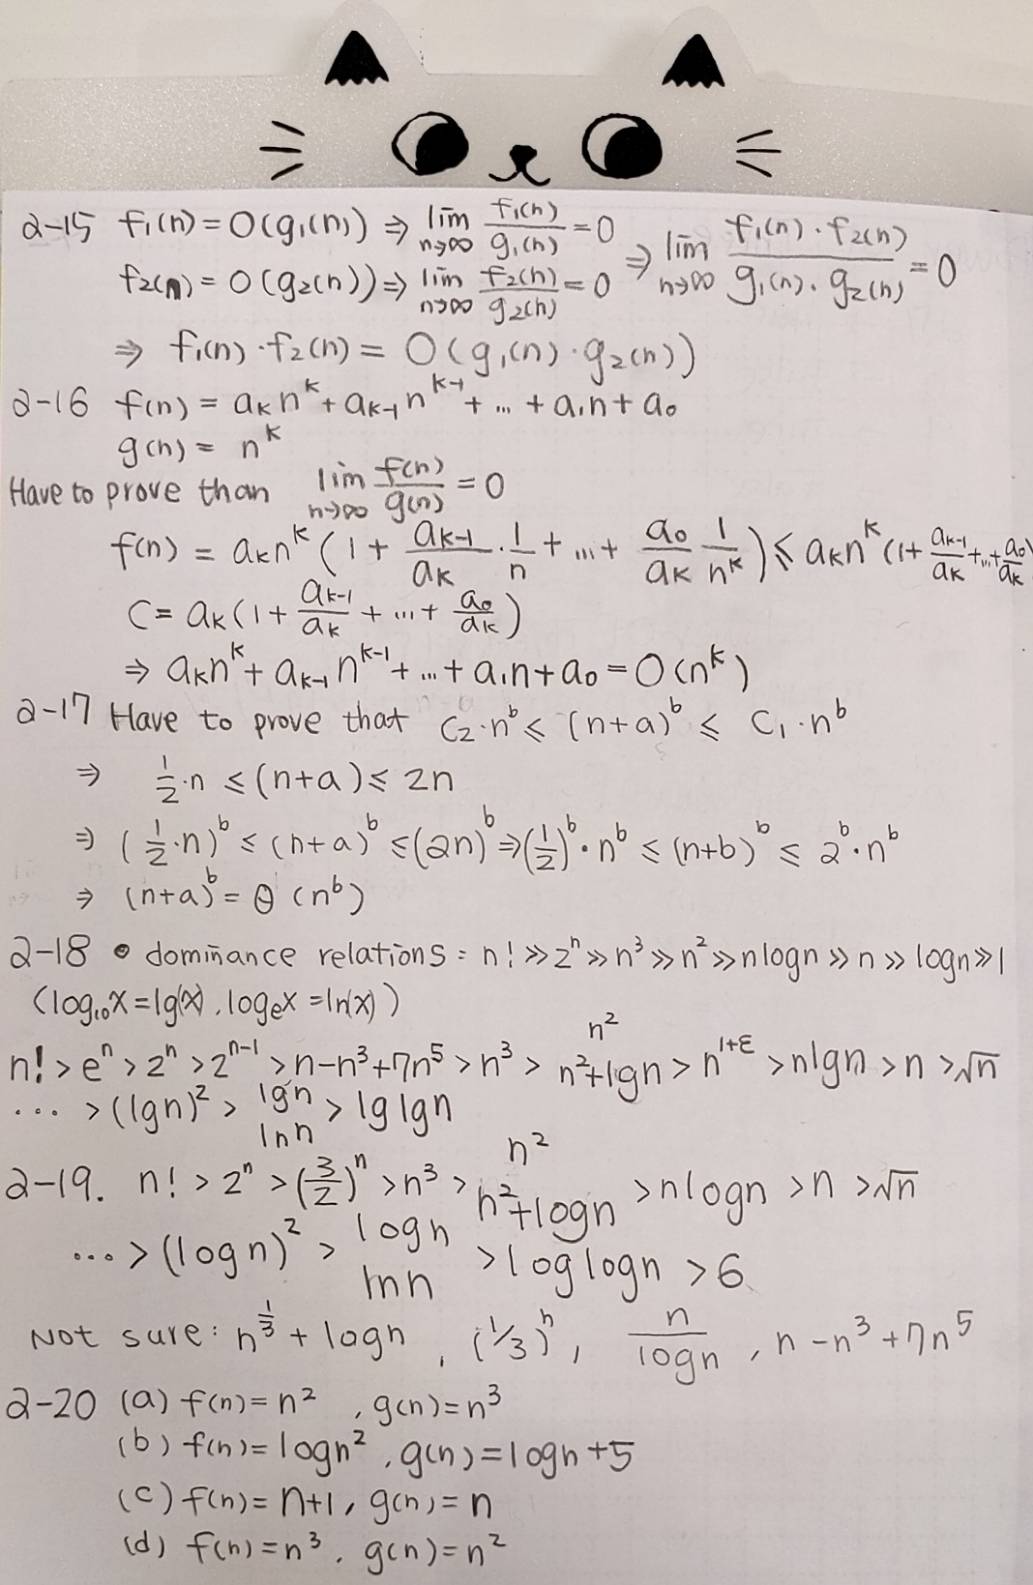 2-15 f₁(n) = O(g₁(n)) ⇒ lim n→∞ f₁(n)/g₁(n) = 0 ⇒ lim n→∞ f₁(n)·f₂(n)/g₁(n)·g₂(n) = 0
f₂(n) = O(g₂(n)) ⇒ lim n→∞ f₂(n)/g₂(n) = 0
⇒ f₁(n)·f₂(n) = O(g₁(n)·g₂(n))
2-16 f(n) = aₖnᵏ + aₖ₋₁nᵏ⁻¹ + ... + a₁n + a₀
g(n) = nᵏ
Have to prove than lim n→∞ f(n)/g(n) = 0
f(n) = aₖnᵏ(1 + aₖ₋₁/aₖ · 1/n + ... + a₀/aₖ 1/nᵏ) ≤ aₖnᵏ(1 + aₖ₋₁/aₖ + ... + a₀/aₖ)
C = aₖ(1 + aₖ₋₁/aₖ + ... + a₀/aₖ)
⇒ aₖnᵏ + aₖ₋₁nᵏ⁻¹ + ... + a₁n + a₀ = O(nᵏ)
2-17 Have to prove that C₂·nᵇ ≤ (n+a)ᵇ ≤ C₁·nᵇ
⇒ 1/2·n ≤ (n+a) ≤ 2n
⇒ (1/2·n)ᵇ ≤ (n+a)ᵇ ≤ (2n)ᵇ ⇒ (1/2)ᵇ·nᵇ ≤ (n+b)ᵇ ≤ 2ᵇ·nᵇ
⇒ (n+a)ᵇ = θ(nᵇ)
2-18 • dominance relations: n! ≫ 2ⁿ ≫ n³ ≫ n² ≫ nlogn ≫ n ≫ logn ≫ 1
(log₁₀x = lg(x), logₑx = ln(x))
n²
n! > eⁿ > 2ⁿ > 2ⁿ⁻¹ > n-n³+7n⁵ > n³ > n²+lgn > n¹⁺ᵋ > nlgn > n > √n
... > (lgn)² > lgn > lglgn
lnn
n²
2-19. n! > 2ⁿ > (3/2)ⁿ > n³ > n²+logn > nlogn > n > √n
... > (logn)² > logn > loglogn > 6
lnn
Not sure: n^1/3 + logn, (1/3)ⁿ, n/logn, n-n³+7n⁵
2-20 (a) f(n) = n², g(n) = n³
(b) f(n) = logn², g(n) = logn+5
(c) f(n) = n+1, g(n) = n
(d) f(n) = n³, g(n) = n²